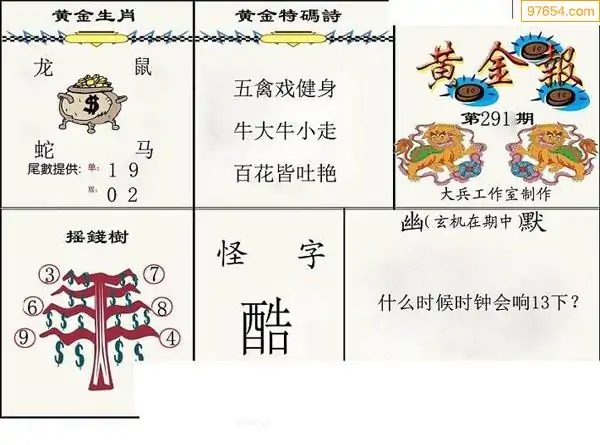 97654.com
黄金生肖
龙 鼠
蛇 马
尾數提供: 单: 1 9
双: 0 2
黄金特碼詩
五禽戏健身
牛大牛小走
百花皆吐艳
黄金報
第291期
大兵工作室制作
摇錢樹
③ ⑦
⑥ ⑧
⑨ ④
怪 字
酷
幽(玄机在期中)默
什么时候时钟会响13下?